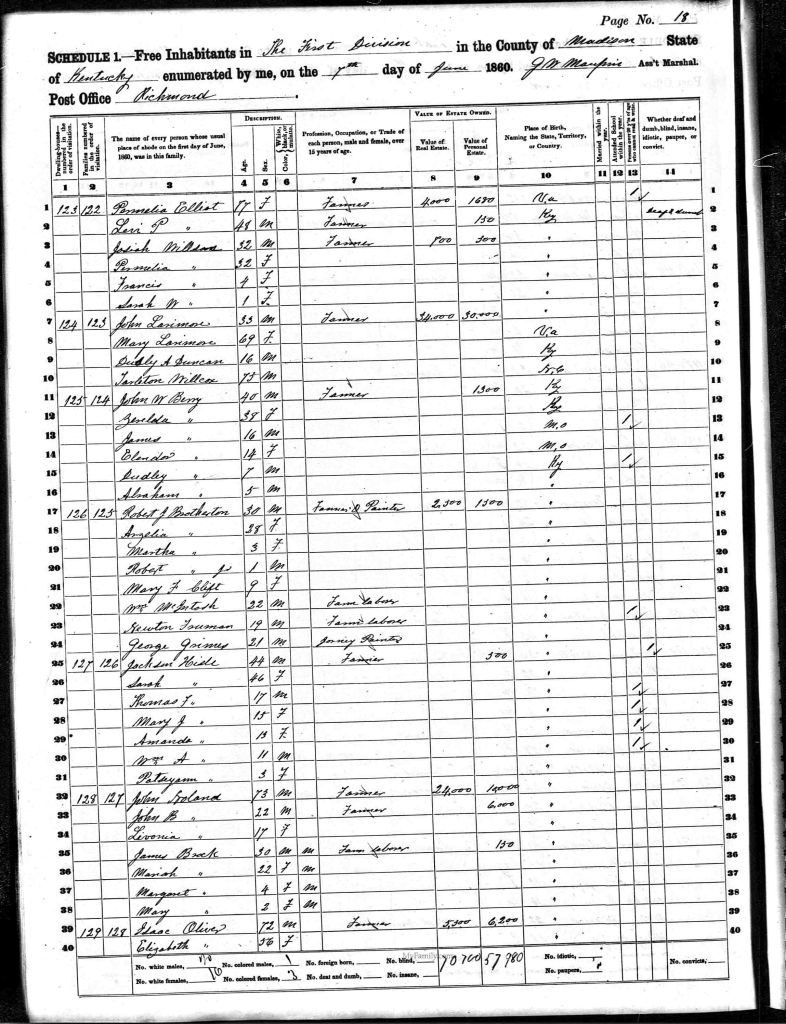 Page No. 18
SCHEDULE 1.—Free Inhabitants in The First Division in the County of Madison State
of Kentucky enumerated by me, on the 7th day of June 1860. J W Maupin Ass't Marshal.
Post Office Richmond.
Dwelling-houses—numbered in the order of visitation.
Families numbered in the order of visitation.
The name of every person whose usual place of abode on the first day of June, 1860, was in this family.
DESCRIPTION.
Age.
Sex.
Color, White, black, or mulatto.
Profession, Occupation, or Trade of each person, male and female, over 15 years of age.
VALUE OF ESTATE OWNED.
Value of Real Estate.
Value of Personal Estate.
Place of Birth, Naming the State, Territory, or Country.
Married within the year.
Attended School within the year.
Whether deaf and dumb, blind, insane, idiotic, pauper, or convict.
1 2 3 4 5 6 7 8 9 10 11 12 13 14
1 123 122 Permelia Elliot 77 F Farmer 4,000 1680 Va 1 1
2 Levi P " 48 m Farmer 150 Ky deaf & dumb 2
3 Josiah 32 m Farmer 800 300 " 3
4 Permelia " 32 F " 4
5 Francis " 4 F " 5
6 Sarah W " 1 F " 6
7 124 123 John Larimore 33 m Farmer 34,000 30,000 " 7
8 Mary Larimore 69 F Va 8
9 Dudly A Duncan 16 m Ky 9
10 Tarleton Willcox 75 m N.C 10
11 125 124 John W Berry 40 m Farmer 1300 Ky 11
12 Zerelda " 38 F Ky 12
13 James " 16 m M,o 1 13
14 Elender " 14 F M,o 14
15 Dudley " 7 m Ky 1 15
16 Abraham " 5 m " 16
17 126 125 Robert J Brotherton 30 m Farmer & Painter 2,500 1500 " 17
18 Angelia " 28 F " 18
19 Martha " 3 F " 19
20 Robert " Jr 1 m " 20
21 Mary F Clift 9 F " 21
22 Wm McIntosh 22 m Farm laborer " 22
23 Newton Truman 19 m Farm laborer " 1 23
24 George Grimes 21 m Jorney Painter " 24
25 127 126 Jackson Hisle 44 m Farmer 500 " 1 25
26 Sarah " 46 F " 26
27 Thomas F " 17 m " 1 27
28 Mary J " 15 F " 1 28
29 Amanda " 13 F " 1 29
30 Wm A " 11 m " 1 30
31 Patsyann " 3 F " 31
32 128 127 John Noland 73 m Farmer 24,000 " 32
33 John B " 22 m Farmer 6,000 " 33
34 Levonia " 17 F " 34
35 James Brock 30 m m Farm laborer 150 " 35
36 Mariah " 22 F m " 36
37 Margaret " 4 F m " 37
38 Mary " 2 F m " 38
39 129 128 Isaac Oliver 72 m Farmer 5,500 6,200 " 39
40 Elizabeth " 56 F " 40
No. white males, No. colored males, 1 No. foreign born, No. blind, 70700 57980 No. idiotic, No. convicts,
No. white females, 16 No. colored females, 3 No. deaf and dumb, No. insane, No. paupers,
MyFamily.com